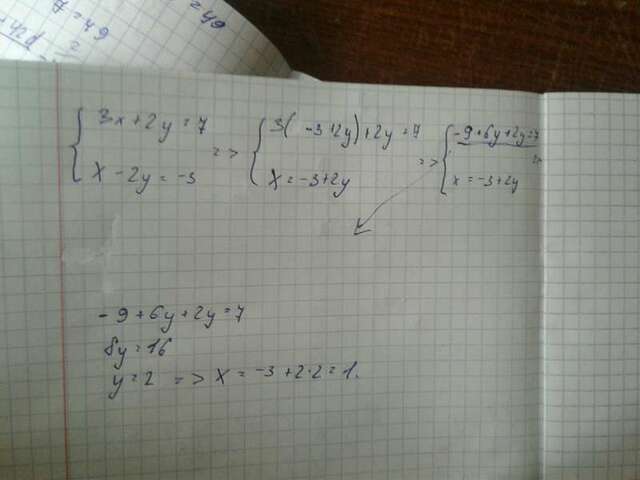 7 = 49
= 49
{ 3x + 2y = 7
x - 2y = -3
=> { 3( -3 + 2y) + 2y = 7
x = -3 + 2y
=> { -9 + 6y + 2y = 7
x = -3 + 2y
=>
-9 + 6y + 2y = 7
8y = 16
y = 2 => x = -3 + 2·2 = 1.